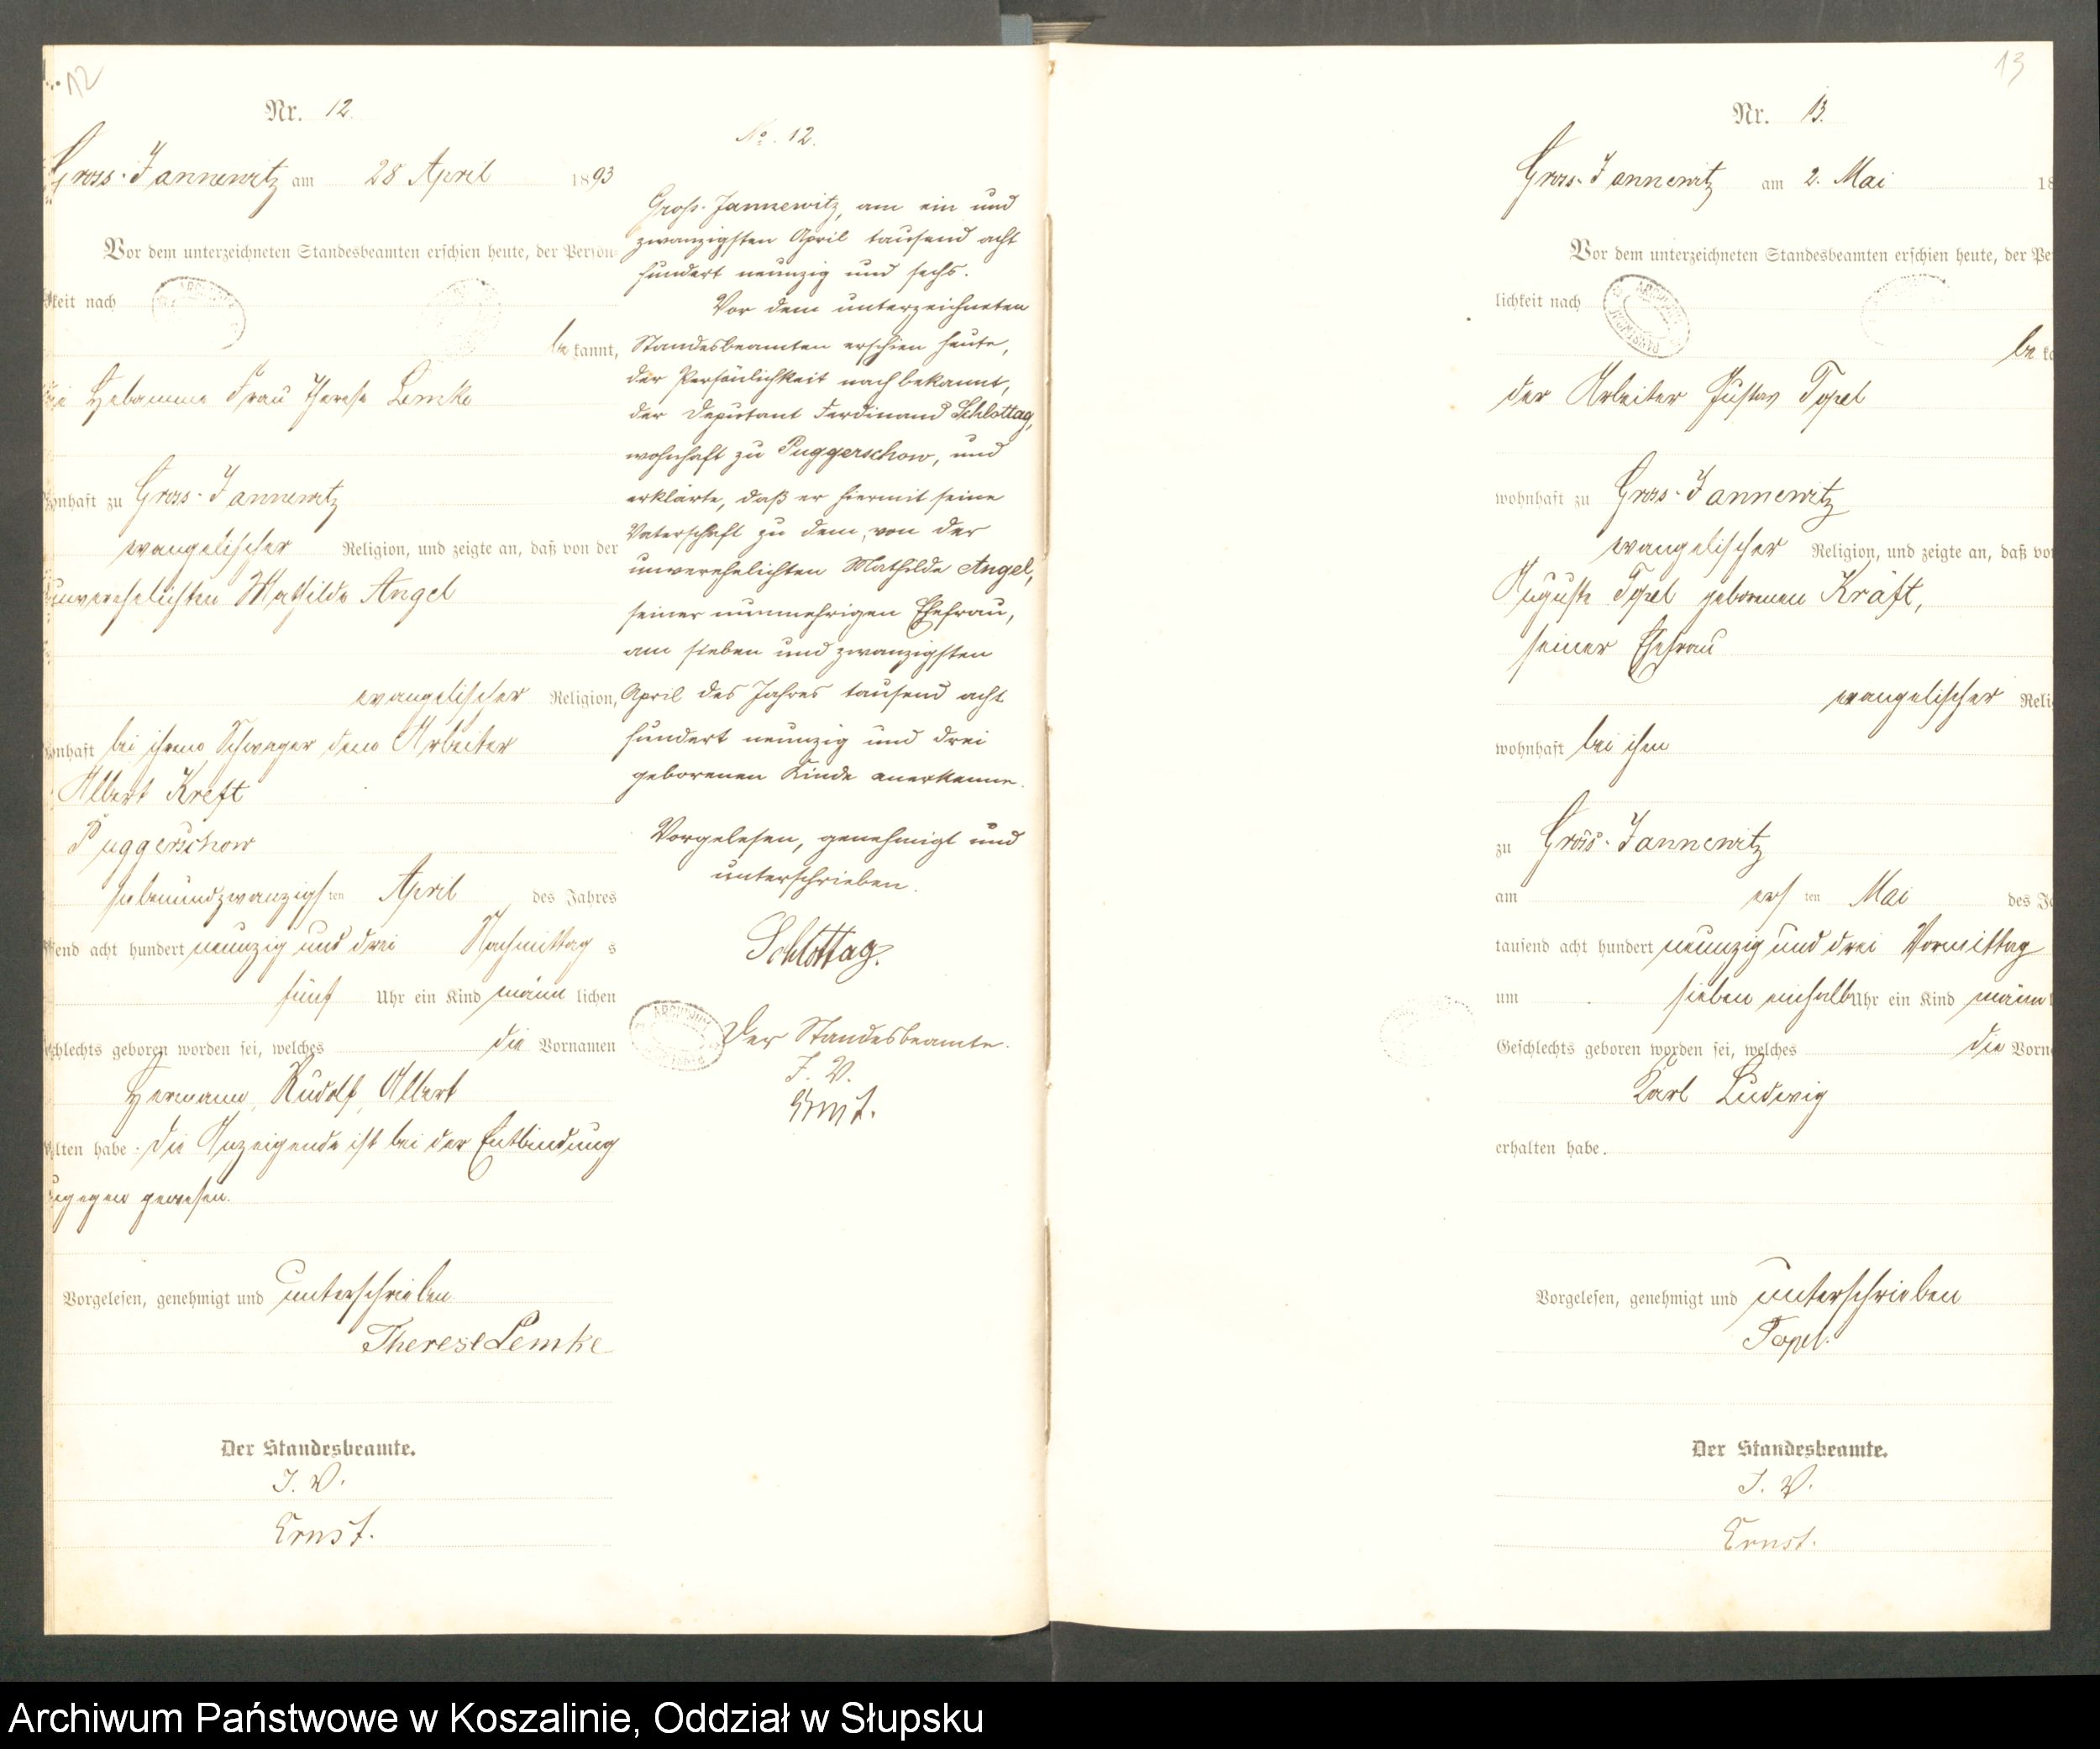 12
Nr. 12.
Gross-Jannewitz am 28 April 1893
Vor dem unterzeichneten Standesbeamten erschien heute, der Persön-
keit nach
be kannt,
die Hebamme Frau Therese Lemke
ohnhaft zu Gross-Jannewitz
evangelischer Religion, und zeigte an, daß von der
unverehelichten Mathilde Angel
evangelischer Religion,
ohnhaft bei ihrem Schwager, dem Arbeiter
Albert Kreft
Puggerschow
siebenundzwanzigs ten April des Jahres
send acht hundert neunzig und drei Nachmittag s
fünf Uhr ein Kind männ lichen
schlechts geboren worden sei, welches die Vornamen
Hermann, Rudolf, Albert
alten habe. Die Anzeigende ist bei der Entbindung
zugegen gewesen.
Vorgelesen, genehmigt und unterschrieben
Therese Lemke
Der Standesbeamte.
J. V.
Ernst.
No. 12.
Groß-Jannewitz, am ein und
zwanzigsten April tausend acht
hundert neunzig und sechs.
Vor dem unterzeichneten
Standesbeamten erschien heute,
der Persönlichkeit nach bekannt,
der Deputant Ferdinand Schlottag,
wohnhaft zu Puggerschow, und
erklärte, daß er hiermit seine
Vaterschaft zu dem, von der
unverehelichten Mathilde Angel,
seiner nunmehrigen Ehefrau,
am sieben und zwanzigsten
April des Jahres tausend acht
hundert neunzig und drei
geborenen Kinde anerkenne.
Vorgelesen, genehmigt und
unterschrieben.
Schlottag.
Der Standesbeamte.
J. V.
Ernst.
ARCHIWUM
13
Nr. 13.
Gross-Jannewitz am 2. Mai 18
Vor dem unterzeichneten Standesbeamten erschien heute, der Pe
lichkeit nach
be k
der Arbeiter Gustav Topel
wohnhaft zu Gross-Jannewitz
evangelischer Religion, und zeigte an, daß vo
Auguste Topel geborenen Kräft,
seiner Ehefrau
evangelischer Reli
wohnhaft bei ihm
zu Gross-Jannewitz
am ers ten Mai des J
tausend acht hundert neunzig und drei Vormittag
um sieben einhalb Uhr ein Kind männ
Geschlechts geboren worden sei, welches die Vorn
Karl Ludwig
erhalten habe.
Vorgelesen, genehmigt und unterschrieben
Topel.
Der Standesbeamte.
J. V.
Ernst.
Archiwum Państwowe w Koszalinie, Oddział w Słupsku